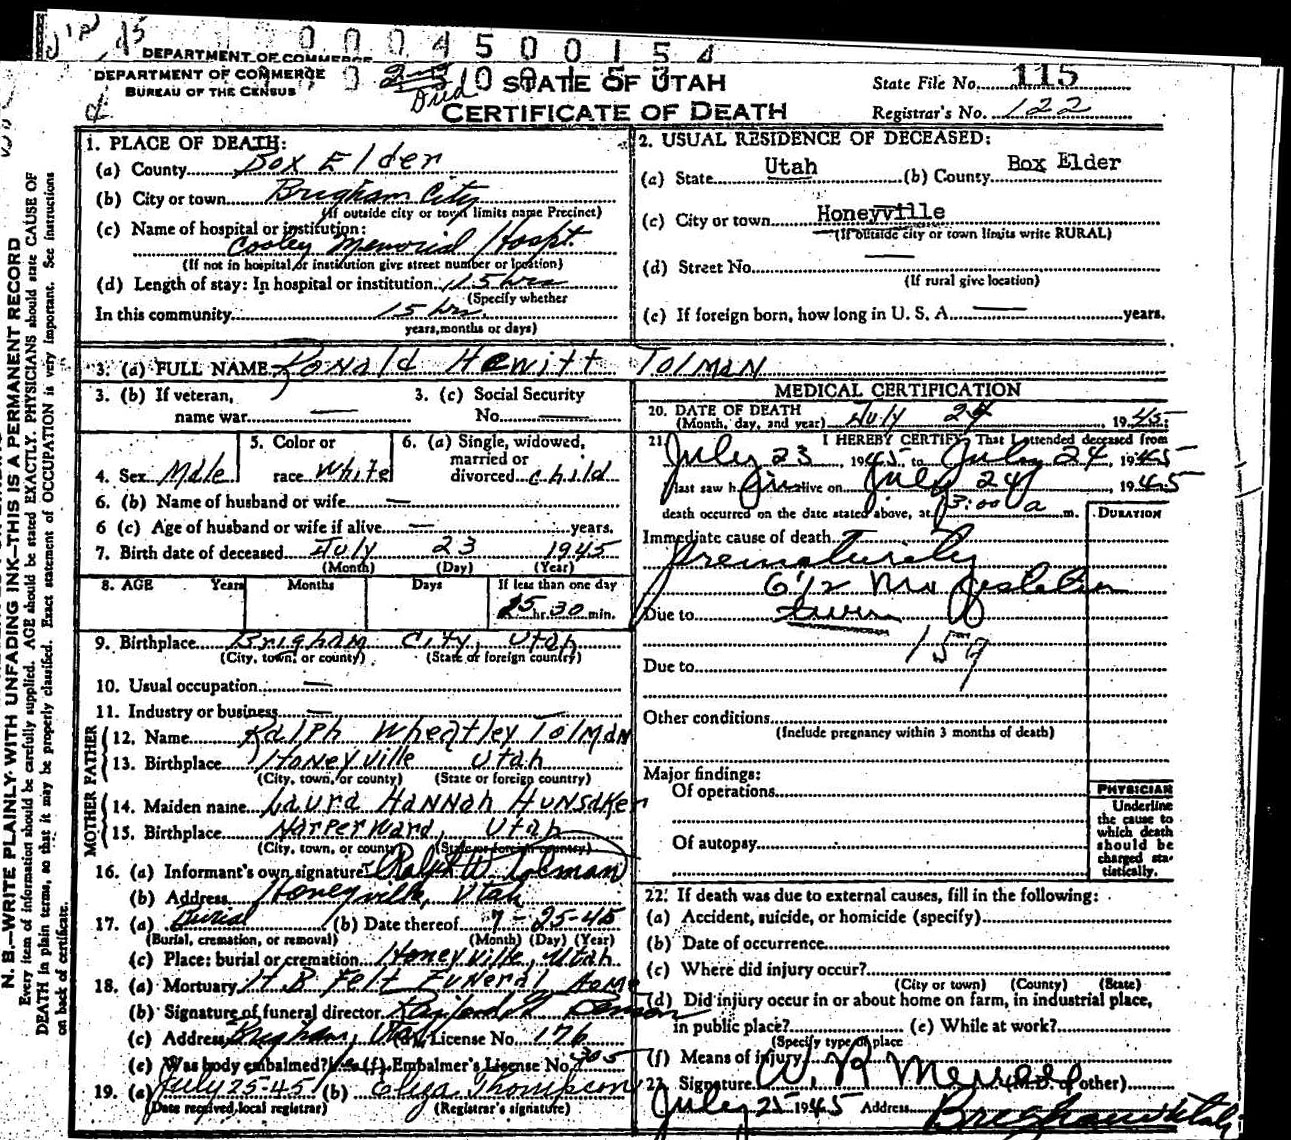 0 0 0 4 5 0 0 1 5 4
DEPARTMENT OF COMMERCE
DEPARTMENT OF COMMERCE
BUREAU OF THE CENSUS
STATE OF UTAH
CERTIFICATE OF DEATH
State File No. 115
Registrar's No. 122
1. PLACE OF DEATH:
(a) County Box Elder
(b) City or town Brigham City
(If outside city or town limits name Precinct)
(c) Name of hospital or institution:
Cooley Memorial Hospt.
(If not in hospital or institution give street number or location)
(d) Length of stay: In hospital or institution 15 hrs
(Specify whether
In this community 15 hrs.
years, months or days)
2. USUAL RESIDENCE OF DECEASED:
(a) State Utah (b) County Box Elder
(c) City or town Honeyville
(If outside city or town limits write RURAL)
(d) Street No. —
(If rural give location)
(e) If foreign born, how long in U. S. A. — years.
3. (a) FULL NAME Ronald Hewitt Tolman
3. (b) If veteran, name war —
3. (c) Social Security No. —
4. Sex Male
5. Color or race White
6. (a) Single, widowed, married or divorced child
6. (b) Name of husband or wife —
6 (c) Age of husband or wife if alive — years.
7. Birth date of deceased July 23 1945
(Month) (Day) (Year)
8. AGE Years Months Days If less than one day
15 hr. 30 min.
9. Birthplace Brigham City, Utah
(City, town, or county) (State of foreign country)
10. Usual occupation —
11. Industry or business —
FATHER
12. Name Ralph Wheatley Tolman
13. Birthplace Honeyville Utah
(City, town, or county) (State or foreign country)
MOTHER
14. Maiden name Laura Hannah Hunsaker
15. Birthplace Harper Ward, Utah
(City, town, or county) (State or foreign country)
16. (a) Informant's own signature Ralph W. Tolman
(b) Address Honeyville, Utah
17. (a) Burial (b) Date thereof 7-25-45
(Burial, cremation, or removal) (Month) (Day) (Year)
(c) Place: burial or cremation Honeyville, Utah
18. (a) Mortuary H B Felt Funeral Home
(b) Signature of funeral director
(c) Address Brigham, Utah License No. 176
(e) Was body embalmed? (f) Embalmer's License No. 305
19. (a) July 25-45 (b) Eliza Thompson
(Date received local registrar) (Registrar's signature)
MEDICAL CERTIFICATION
20. DATE OF DEATH
(Month, day, and year) July 24, 1945.
21. I HEREBY CERTIFY, That I attended deceased from
July 23, 1945 to July 24, 1945
last saw him alive on July 24 1945
death occurred on the date stated above, at 3:00 a m.
DURATION
Immediate cause of death
prematurity
6 1/2 Mo gestation
Due to twin
159
Due to
Other conditions
(Include pregnancy within 3 months of death)
Major findings:
Of operations
Of autopsy
PHYSICIAN
Underline
the cause to
which death
should be
charged sta-
tistically.
22. If death was due to external causes, fill in the following:
(a) Accident, suicide, or homicide (specify)
(b) Date of occurrence
(c) Where did injury occur?
(City or town) (County) (State)
(d) Did injury occur in or about home on farm, in industrial place,
in public place? (e) While at work?
(Specify type of place
(f) Means of injury
Signature W R Merrell (M. D. or other)
July 25 1945 Address Brigham Utah
N. B.—WRITE PLAINLY WITH UNFADING INK—THIS IS A PERMANENT RECORD
Every item of information should be carefully supplied. AGE should be stated EXACTLY. PHYSICIANS should state CAUSE OF
DEATH in plain terms, so that it may be properly classified. Exact statement of OCCUPATION is very important. See instructions
on back of certificate.